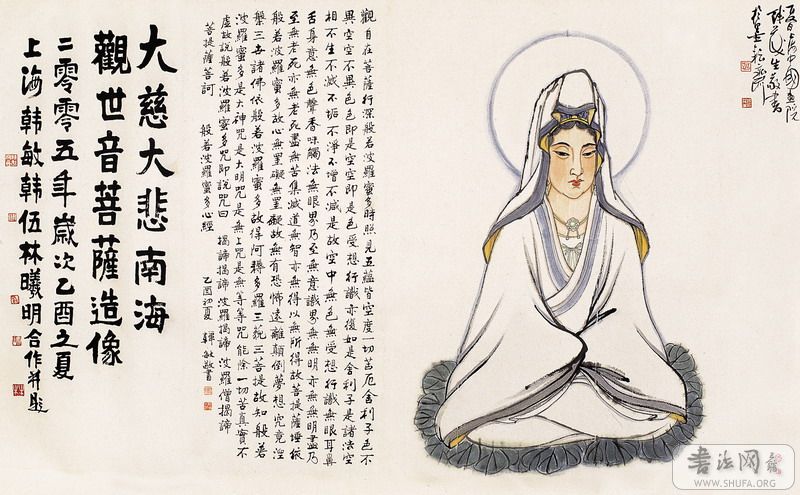 觀自在菩薩行深般若波羅蜜多時照見五蘊皆空度一切苦厄舍利子色不
異空空不異色色即是空空即是色受想行識亦復如是舍利子是諸法空
相不生不滅不垢不淨不增不減是故空中無色無受想行識無眼耳鼻
舌身意無色聲香味觸法無眼界乃至無意識界無無明亦無無明盡乃
至無老死亦無老死盡無苦集滅道無智亦無得以無所得故菩提薩埵依
般若波羅蜜多故心無罣礙無罣礙故無有恐怖遠離顛倒夢想究竟涅
槃三世諸佛依般若波羅蜜多故得阿耨多羅三藐三菩提故知般若
波羅蜜多是大神咒是大明咒是無上咒是無等等咒能除一切苦真實不
虛故說般若波羅蜜多咒即說咒曰 揭諦揭諦 波羅揭諦 波羅僧揭諦
菩提薩婆訶 般若波羅蜜多心經 乙酉初夏 韓敏敬書
大慈大悲南海
觀世音菩薩造像
二零零五年歲次乙酉之夏
上海韓敏韓伍林曦明合作并題
書法网
WWW.SHUFA.ORG